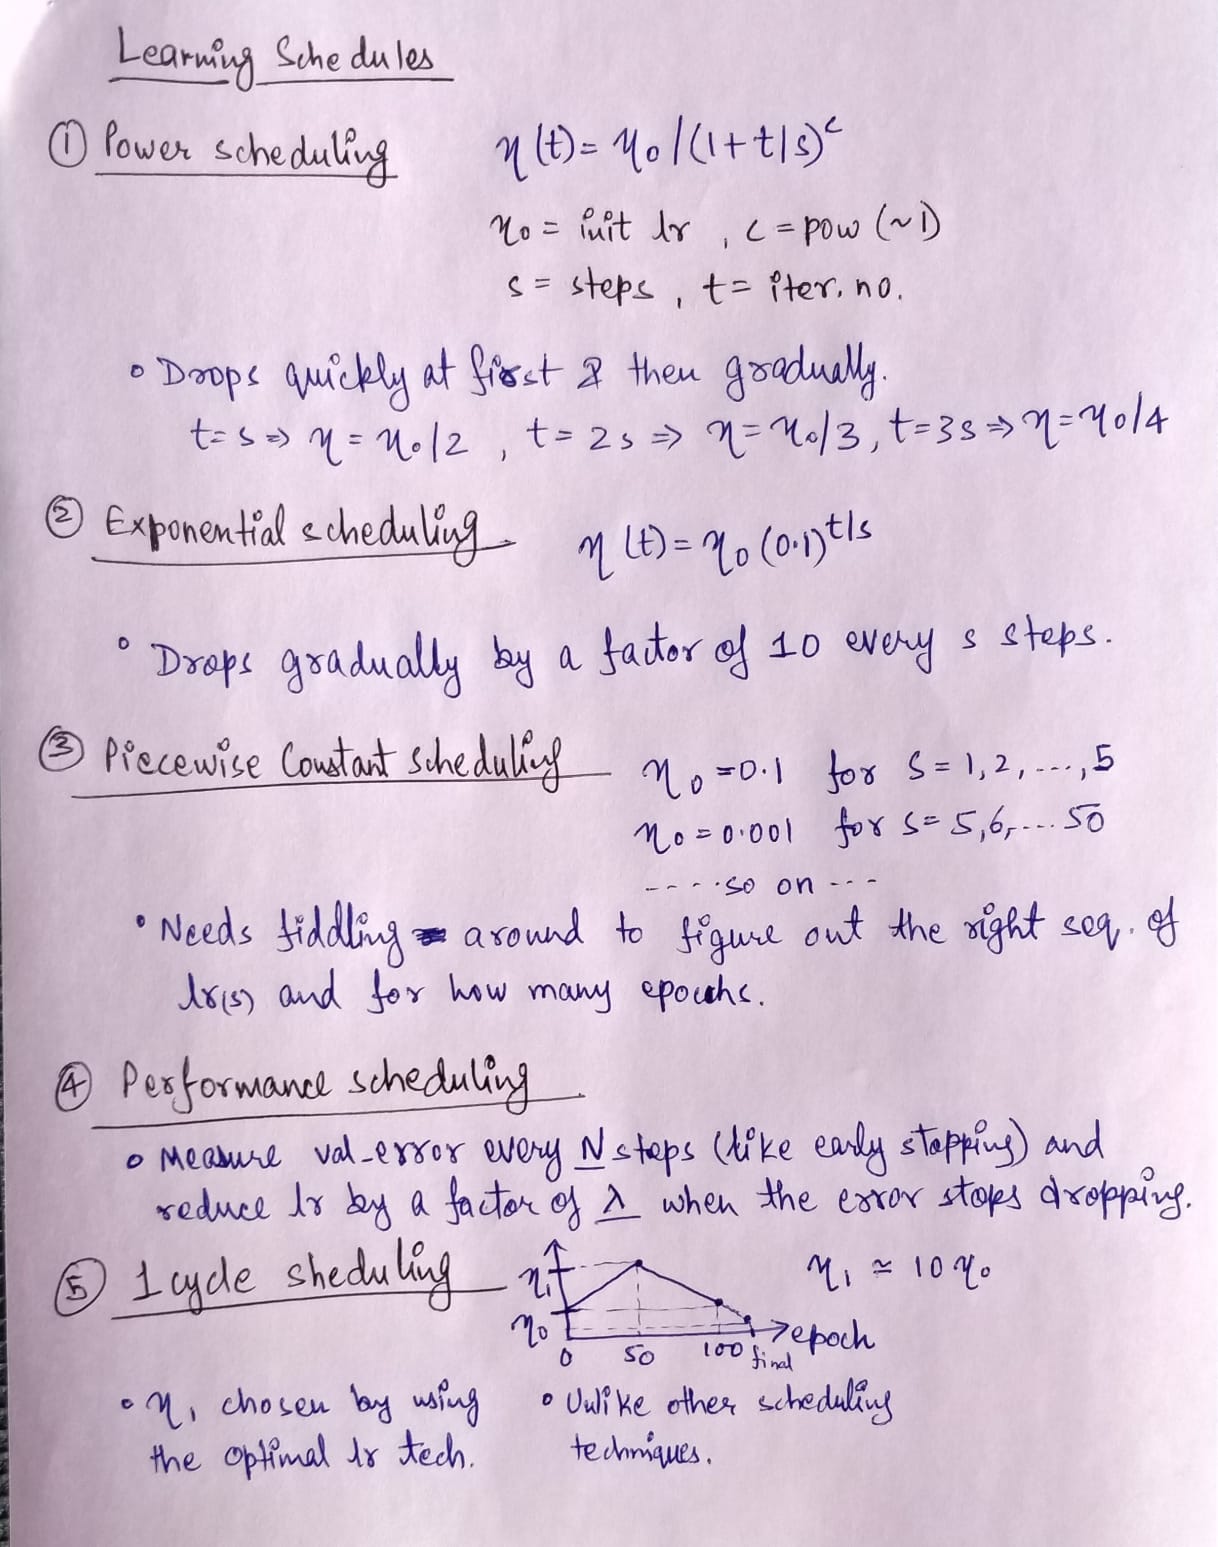 Learning Schedules
① Power scheduling η(t) = η0/(1+t/s)^c
η0 = init lr , c = pow (~1)
s = steps , t = iter. no.
∘ Drops quickly at first & then gradually.
t=s ⇒ η = η0/2 , t = 2s ⇒ η = η0/3, t=3s ⇒ η = η0/4
② Exponential scheduling η(t) = η0 (0.1)^t/s
∘ Drops gradually by a factor of 10 every s steps.
③ Piecewise Constant Scheduling η0 = 0.1 for S = 1,2, ---, 5
η0 = 0.001 for s= 5,6, ---. 50
---- so on ---
• Needs fiddling around to figure out the right seq. of
lr(s) and for how many epochs.
④ Performance scheduling
∘ Measure val-error every N steps (like early stopping) and
reduce lr by a factor of λ when the error stops dropping.
⑤ 1 cycle sheduling η1 ≃ 10 η0
η1
η0
0 50 100 final epoch
∘ η1 chosen by using
the optimal lr tech.
∘ Unlike other scheduling
techniques.